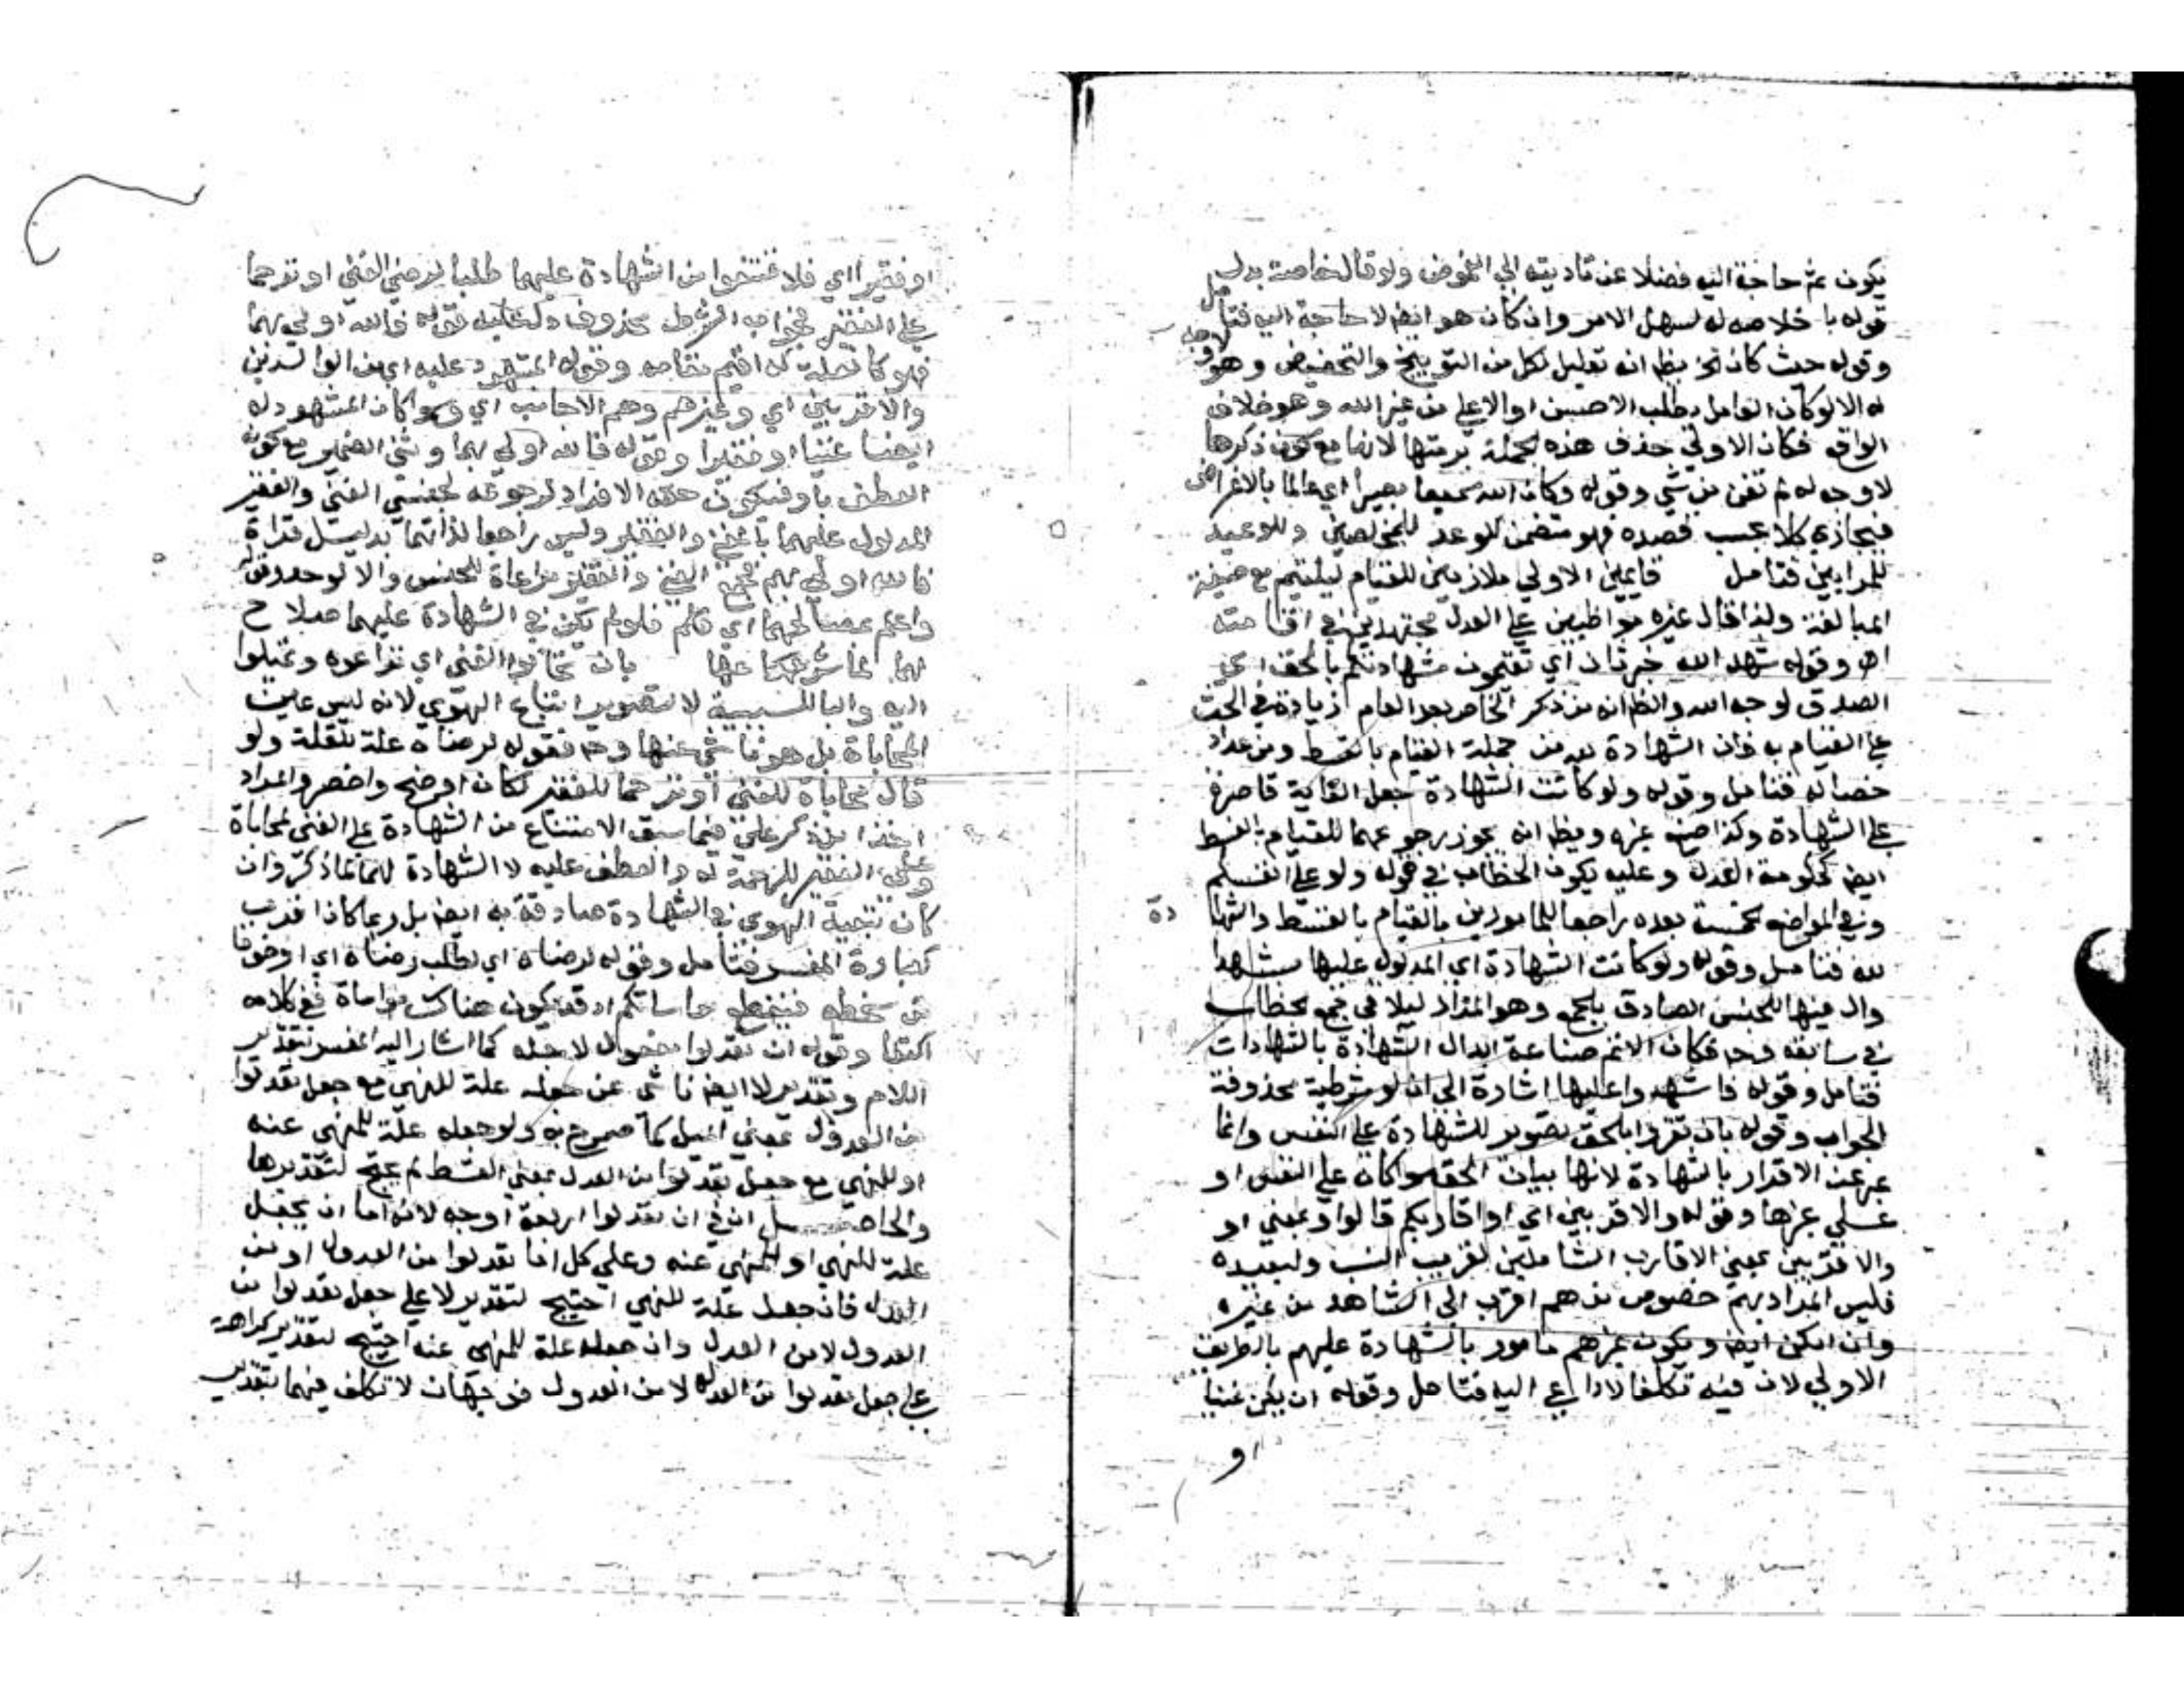 يكون ثم حاجة اليه فضلا عن تاديته الي الغموض ولو قال خاصة بدل
قوله با خلاصه له لسهل الامر وان كان هو ايضا لا حاجة اليه فتامل
وقوله حيث كان الخ يظهر انه تعليل لكل من التوبيخ والتخفيض وهو لا وجه
له الا لو كان العامل يطلب الاحسن او الاعلي من غير الله وهو خلاف
الواقع فكان الاولي حذف هذه الجملة برمتها لانها مع كون ذكرها
لا وجه له لم تغن من شي وقوله وكان الله سميعا بصيرا اي عالما بالاغراض
فيجازي كلا بحسب قصده فهو متضمن للوعد للمخلصين وللوعيد
للمرايين فتامل قايمين الاولي ملازمين للقيام ليلتيم مع صيغة
المبالغة ولذا قال غيره مواظبين علي العدل مجتهدين في اقامته
اه وقوله شهدا لله خبر ثان اي تقيمون شهادتكم بالحق اي
الصدق لوجه الله والظ انه من ذكر الخاص بعد العام زيادة في الحث
علي القيام به فان الشهادة لله من جملة القيام بالقسط ومن عداد
خصاله فتامل وقوله ولو كانت الشهادة جعل الغاية قاصرة
علي الشهادة وكذا صنع غيره ويظهر انه يجوز رجوعها للقيام بالقسط
ايضا كحكومة العدل وعليه يكون الخطاب في قوله ولو علي انفسكم
وفي المواضع الخمسة بعده راجعا للمامورين بالقيام بالقسط والشهادة
لله فتامل وقوله ولو كانت الشهادة اي المدلول عليها بشهدا
وال فيها للجنس الصادق بالجمع وهو المراد ليلاقي جمع الخطاب
في سابقه وح فكان الاتم صناعة ابدال الشهادة بالشهادات
فتامل وقوله فاشهدوا عليها اشارة الي ان لو شرطية محذوفة
الجواب وقوله بان تقروا بالحق تصوير للشهادة علي النفس وانما
عبر عن الاقرار بالشهادة لانها بيان الحق سوا كان علي النفس او
علي غيرها وقوله والاقربين اي او اقاربكم قالوا وبمعني او
والاقربين بمعني الاقارب الشاملين لقريب النسب ولبعيده
فليس المراد بهم خصوص من هم اقرب الي الشاهد من غيره
وان امكن ايضا ويكون غيرهم مامور بالشهادة عليهم بالطريق
الاولي لان فيه تكلفا لا داعي اليه فتامل وقوله ان يكن غنيا
او
او فقيرا اي فلا تمتنعوا من الشهادة عليهما طلبا لرضي الغني او ترحما
علي الفقير فجواب الشرط محذوف دل عليه قوله فالله اولي بهما
فهو كالعلة له اقيم مقامه وقوله المشهود عليه اي من الوالدين
والاقربين اي وغيرهم وهم الاجانب اي وسوا كان المشهود له
ايضا غنيا او فقيرا وقوله فالله اولي بهما وثني الضمير مع كون
العطف باو فيكون حقه الافراد لرجوعه لجنسي الغني والفقير
المدلول عليهما بالغني والفقير وليس راجعا لذاتهما بدليل قراة
فالله اولي بهم بجمع الغني والفقير مراعاة للجنس والا لوحد وقوله
واعلم بمصالحهما اي فلو لم تكن في الشهادة عليهما صلاح
لهما لما شرعها بان تحابوا الغني اي تراعوه وتميلوا
اليه والبا للسببية لا لتصوير اتباع الهوي لانه ليس عين
المحاباة بل هو ناشي عنها وح فقوله لرضاه علة للعلة ولو
قال محاباة للغني او ترحما للفقير لكان اوضح واخصر والمراد
اخذا مما ذكر علي فيما سبق الامتناع من الشهادة علي الغني لمحاباة
وعلي الفقير للرحمة له والعطف عليه لا الشهادة لهما بما ذكر وان
كان نتيجة الهوي في الشهادة صادقة به ايضا بل ربما كان اقرب
لعبارة المفسر فتامل وقوله لرضاه اي لطلب رضاه اي او خوفا
من سخطه مواساتكم اذ قد يكون هناك مواساة ففي كلامه
اكتفا وقوله ان تعدلوا مفعول لاجله كما اشار اليه المفسر بتقدير
اللام وتقدير لا ايضا ناشي عن جعله علة للنهي مع جعل تعدلوا
من العدول بمعني الميل كما صرح به ولو جعله علة للمنهي عنه
او للنهي مع جعل تعدلوا من العدل بمعني القسط لم يحتج لتقديرها
والحاصل ان في ان تعدلوا اربعة اوجه لانه اما ان يجعل
علة للنهي او للمنهي عنه وعلي كل اما تعدلوا من العدول او من
العدل فان جعل علة للنهي احتيج لتقدير لا علي جعل تعدلوا من
العدول لا من العدل وان جعل علة للمنهي عنه احتيج لتقدير كراهة
علي جعل تعدلوا من العدل لا من العدول فوجهان لا تكلف فيهما بتقدير